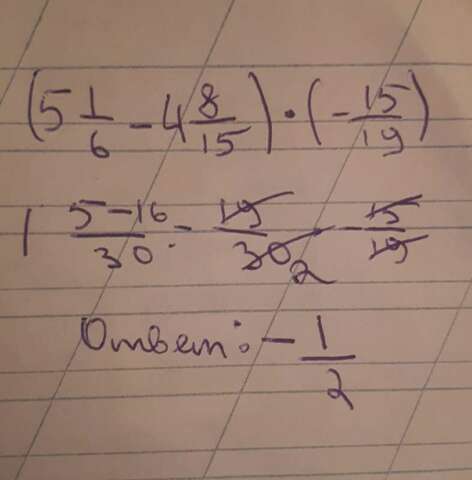 (5 1/6 - 4 8/15) · (- 15/19)
1 5-16/30 = 19/30 2 · - 15/19
Ответ: - 1/2